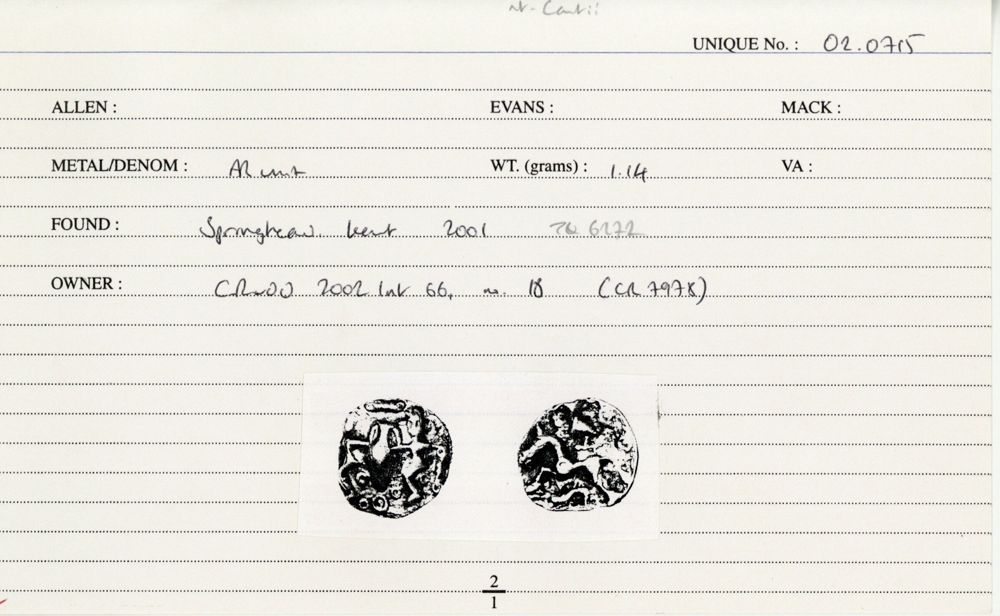 UNIQUE No. : 02.0715
ALLEN : EVANS : MACK :
METAL/DENOM : AR unit WT. (grams) : 1.14 VA :
FOUND : Springhead Kent 2001 TQ 6272
OWNER : 2002 66, no. 18 (CR 797K)
2
1